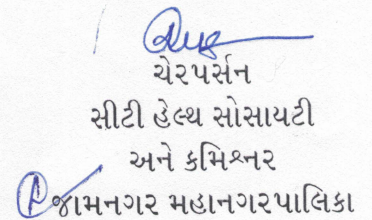 ચેરપર્સન
સીટી હેલ્થ સોસાયટી
અને કમિશ્નર
જામનગર મહાનગરપાલિકા